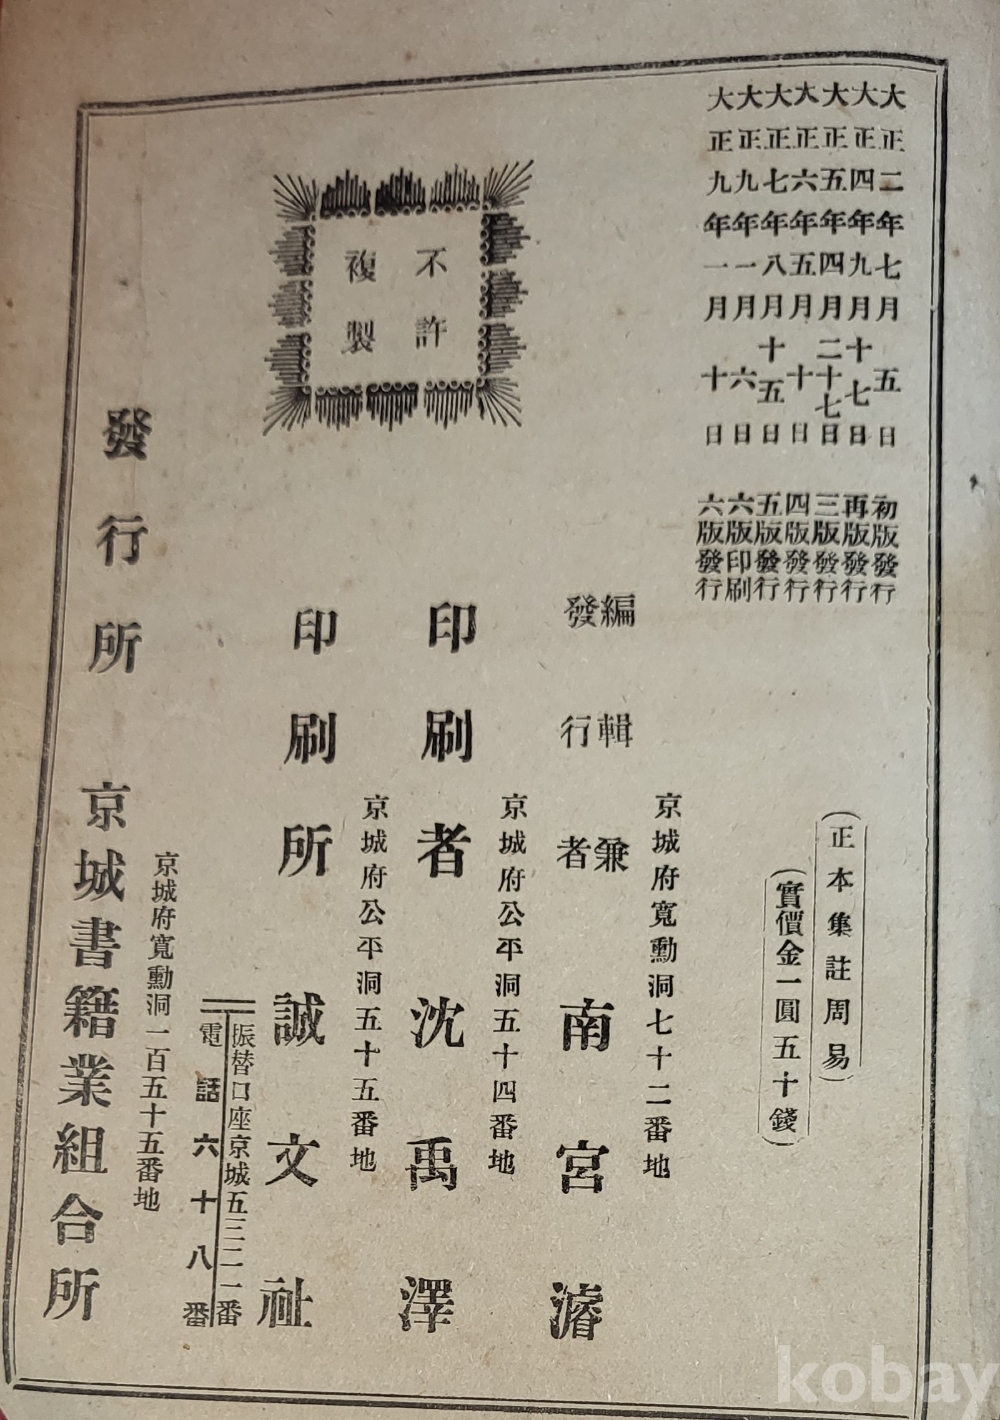 大正二年七月五日 初版發行
大正四年九月十七日 再版發行
大正五年四月二十七日 三版發行
大正六年五月十日 四版發行
大正七年八月十五日 五版發行
大正九年一月六日 六版印刷
大正九年一月十日 六版發行
(正本集註周易)
(實價金一圓五十錢)
不許
複製
京城府寬勳洞七十二番地
編輯兼
發行者 南宮濬
京城府公平洞五十四番地
印刷者 沈禹澤
京城府公平洞五十五番地
印刷所 誠文社
振替口座京城五三二一番
電話六十八番
京城府寬勳洞一百五十五番地
發行所 京城書籍業組合所
kobay